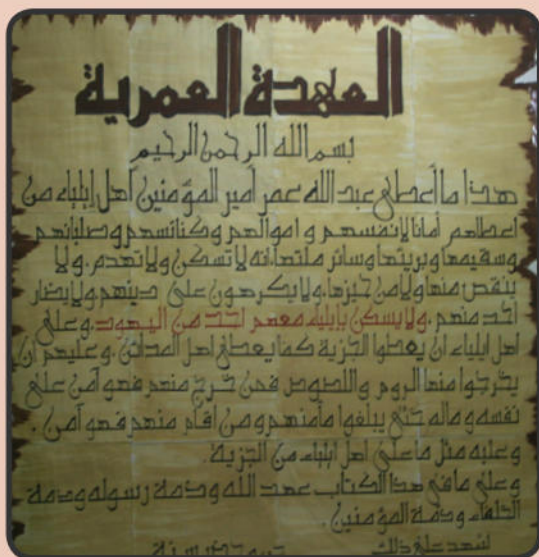 العهدة العمرية
بسم الله الرحمن الرحيم
هذا ما أعطى عبد الله عمر أمير المؤمنين أهل إيلياء من
اعطاهم أمانا لانفسهم و اموالهم وكنائسهم وصلبانهم
وسقيمها وبريئها وسائر ملتها، انه لا تسكن ولا تهدم، ولا
ينقص منها ولا من حيزها، ولا يكرهون على دينهم ولا يضار
احد منهم، ولا يسكن بإيلياء معهم احد من اليهود، وعلى
اهل ايلياء ان يعطوا الجزية كما يعطى اهل المدائن، وعليهم ان
يخرجوا منها الروم واللصوص فمن خرج منهم فهو آمن على
نفسه وماله حتى يبلغوا مأمنهم ومن اقام منهم فهو آمن.
وعليه مثل ما على اهل ايلياء من الجزية.
وعلى ما في هذا الكتاب عهد الله وذمة رسوله وذمة
الخلفاء وذمة المؤمنين.
شهد على ذلك